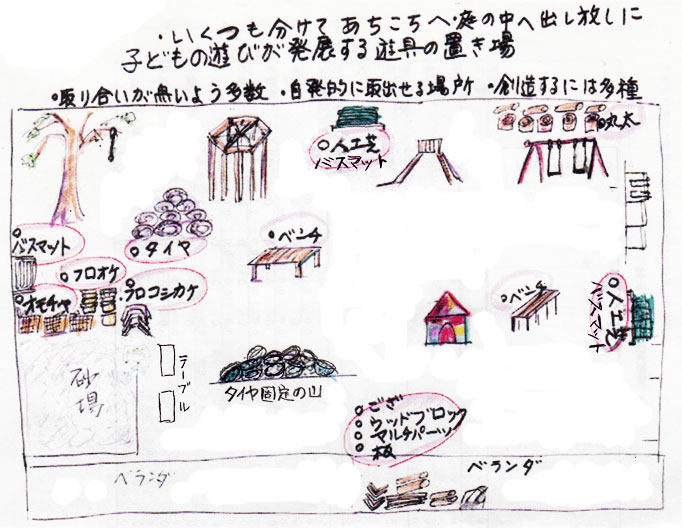 ・いくつも分けて あちこちへ・庭の中へ出し放しに
子どもの遊びが発展する遊具の置き場
・取り合いが無いよう多数 ・自発的に取出せる場所 ・創造するには多種
○丸太
○人工芝
バスマット
○バスマット
○タイヤ
○ベンチ
○フロオケ
○オモチャ
○フロコシカケ
○ベンチ
○人工芝
バスマット
砂場
テーブル
タイヤ固定の山
○ござ
○ウッドブロック
○マルチパーツ
○板
ベランダ
ベランダ